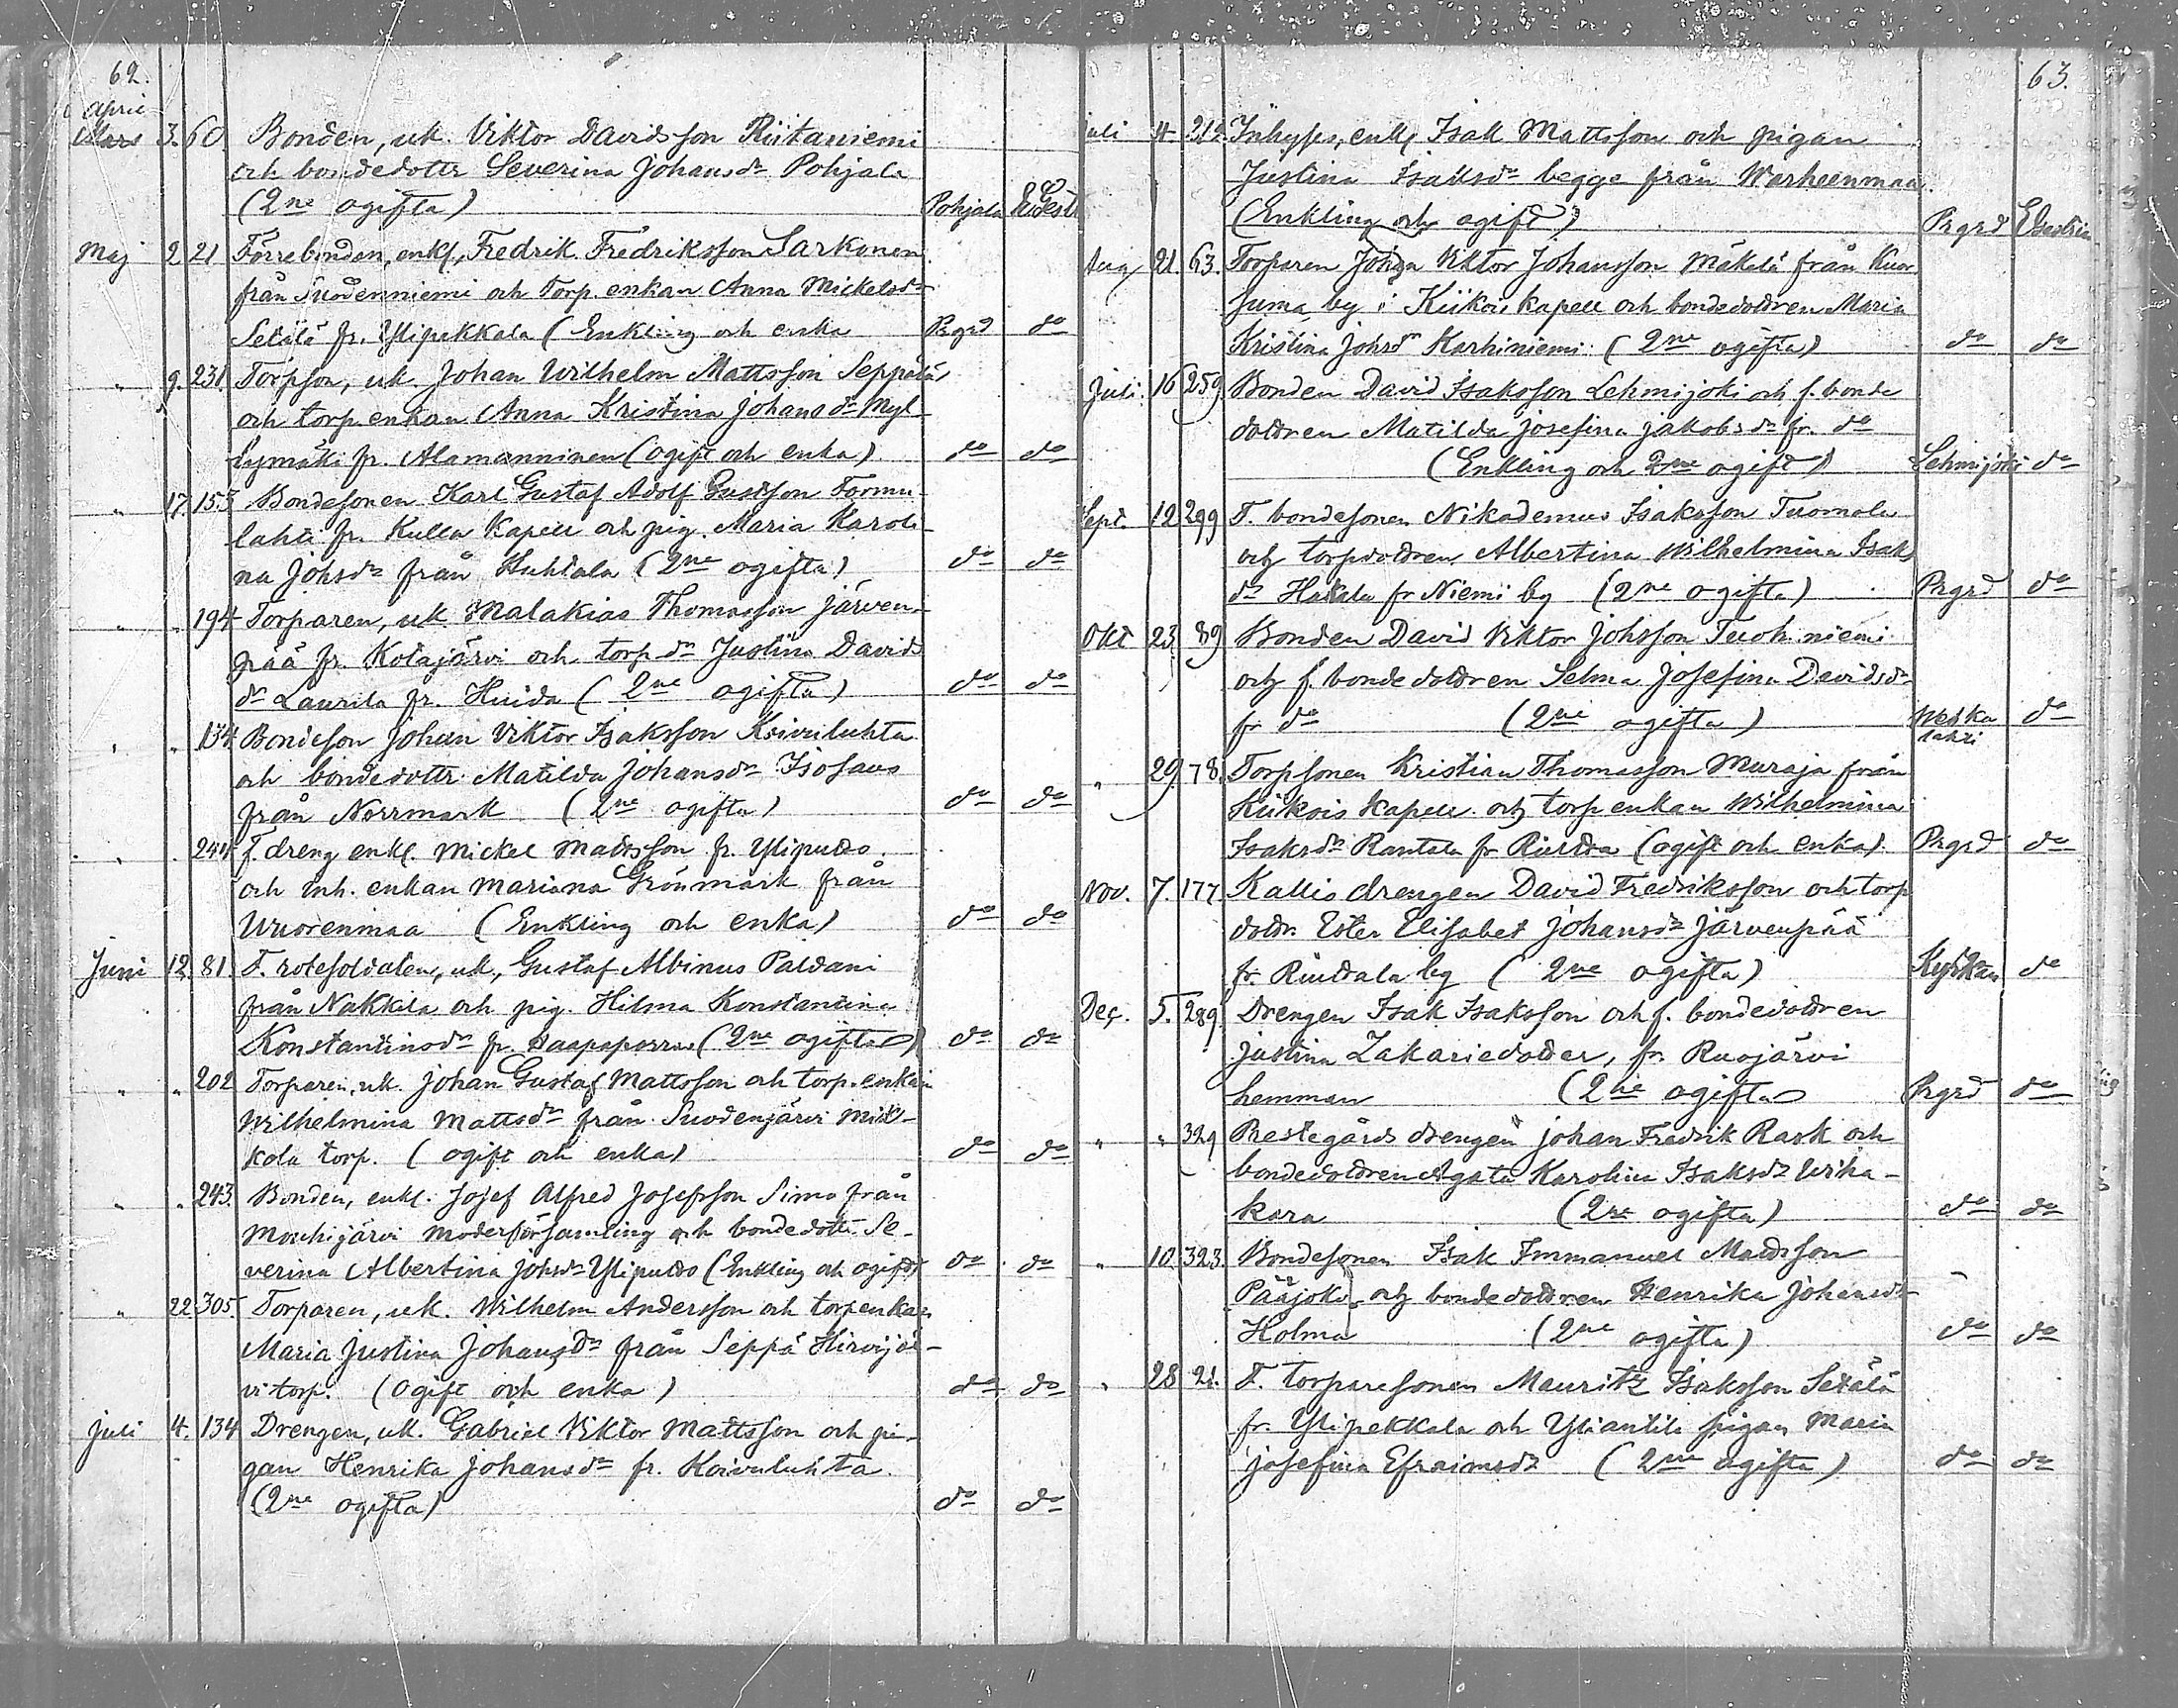 62.
April
Mars 3. 60. Bonden, uk. Viktor Davidsson Riitaniemi
och bondedottr Severina Johansdr Pohjala
(2ne ogifta) Pohjala
Maj 2 21 Förrebonden, enkl, Fredrik Fredriksson Sarkonen
från Suodenniemi och torp. enkan Anna Mickelsdr
Setälä fr. Ylipekkala (Enkling och enka Prgrd do
" 9. 231. Torpson, uk. Johan Wilhelm Mattsson Seppälä
och torp. enkan Anna Kristina Johansdr Myl-
lymäki fr. Alamanninen (ogift och enka) do do
" 17. 153 Bondesonen Karl Gustaf Adolf Gustsson Tormu-
lahti fr. Kulla Kapell och pig. Maria Karoli-
na Johsdr från Huhtala (2ne ogifta) do do
" " 194 Torparen, uk. Malakias Thomasson Järven-
pää fr. Kotajärvi och torp. dr Justina Davids
dr Laurila fr. Huida (2ne ogifta) do do
" " 134 Bondeson Johan Viktor Isaksson Koivuluhta
och bondedottr. Matilda Johansdr Isosavo
från Norrmark (2ne ogifta) do do
" " 244 f. dreng enkl. Mickel Mattsson fr. Yliputto
och inh. enkan Mariana Grönmark från
Wuorenmaa (Enkling och enka) do do
Juni 12. 81. F. rotesoldaten, uk., Gustaf Albinus Paldani
från Nakkila och pig. Hilma Konstantina
Konstantinsdr fr. (2ne ogifta) do do
" " 202 Torparen, uk. Johan Gustaf Mattsson och torp. enkan
Wilhelmina Mattsdr från Suodenjärvi Mik-
kola torp. (ogift och enka) do do
" " 243. Bonden, enkl. Josef Alfred Josefsson Simo från
Mouhijärvi moderförsamling och bondedottr Se-
verina Albertina Johsdr Yliputto (Enkling och ogift) do do
" 22. 305. Torparen, uk. Wilhelm Andersson och torpenkan
Maria Justina Johansdr från Seppä Hirvijär-
vi torp. (ogift och enka) do do
Juli 4. 134 Drengen, uk. Gabriel Viktor Mattsson och pi-
gan Henrika Johansdr fr. Koivuluhta.
(2ne ogifta) do do
63.
Juli 4 212. Inhyses, enkl Isak Mattsson och pigan
Justina Isaksdr begge från Warheenmaa.
(Enkling och ogift) Prgrd
Aug 21. 63. Torparen Johan Viktor Johansson Mäkelä från Kuor
suma by i Kiikois kapell och bondedottren Maria
Kristina Johsdr Karhiniemi (2ne ogifta) do do
Juli. 16 259 Bonden David Isaksson Lehmijoki och f. bonde
dottren Matilda Josefina Jakobsdr fr. do
(Enkling och 2ne ogift) Lehmijoki do
Sept. 12 299 F. bondesonen Nikodemus Isaksson Tuomola
och torpdottren Albertina Wilhelmina Isak
dr Hakala fr Niemi by (2ne ogifta) Prgrd do
Okt 23 89 Bonden David Viktor Johsson Tuohiniemi
och f. bondedottren Selma Josefina Davidsdr
fr do (2ne ogifta) Weska
lahti do
" 29. 78. Torpsonen Kristian Thomasson Muraja från
Kiikois Kapell och torpenkan Wilhelmina
Isaksdr Rantala fr Riutta (ogift och enka). Prgrd do
Nov. 7. 177 Kallis drengen David Fredriksson och torp
dottr. Ester Elisabet Johansdr Järvenpää
fr. Riuttala by (2ne ogifta) Kyrkan do
Dec. 5. 289. Drengen Isak Isaksson och f. bondedottren
Justina Zakariedotter, fr. Ruojärvi
hemman (2ne ogifta Prgrd do
" " 329 Prestegårds drengen Johan Fredrik Rask och
bondedottren Agata Karolina Isaksdr Wiha-
kara (2ne ogifta) do do
" 10. 323. Bondesonen Isak Immanuel Mattsson
Pääjoki och bondedottren Henrika Johansdr
Holma (2ne ogifta) do do
" 28 21. F. torparesonen Mauritz Isaksson Setälä
fr. Ylipekkala och Yliantila pigan Maria
Josefina Efraimsdr (2ne ogifta) do do